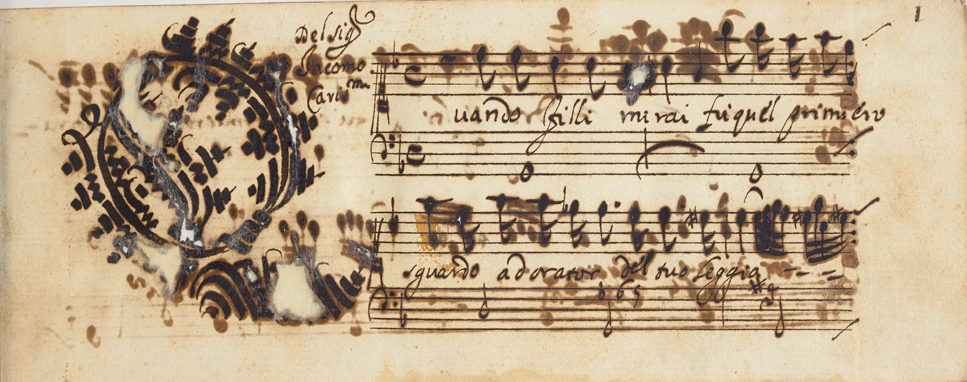 1
Del Sigr
Jacomo
Carismi
Quando filli mirai fu quel primiero
sguardo adorator del tuo leggia
b 6 5 # 4